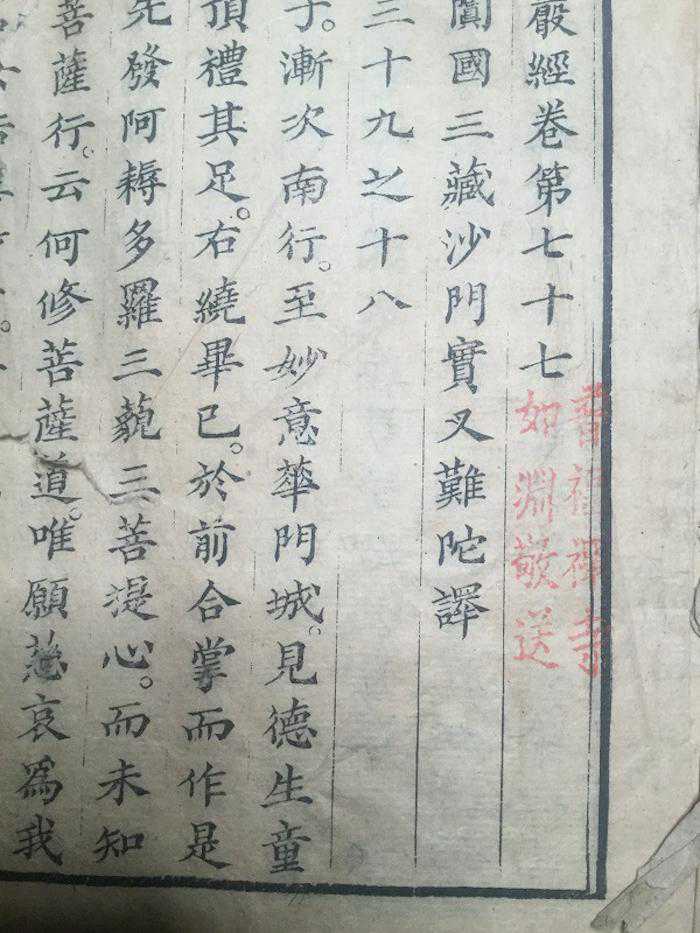 禪寺
如淵敬送
嚴經卷第七十七
闐國三藏沙門實叉難陀譯
三十九之十八
子。漸次南行。至妙意華門城。見德生童
頂禮其足。右繞畢已。於前合掌而作是
先發阿耨多羅三藐三菩提心。而未知
菩薩行。云何修菩薩道。唯願慈哀爲我